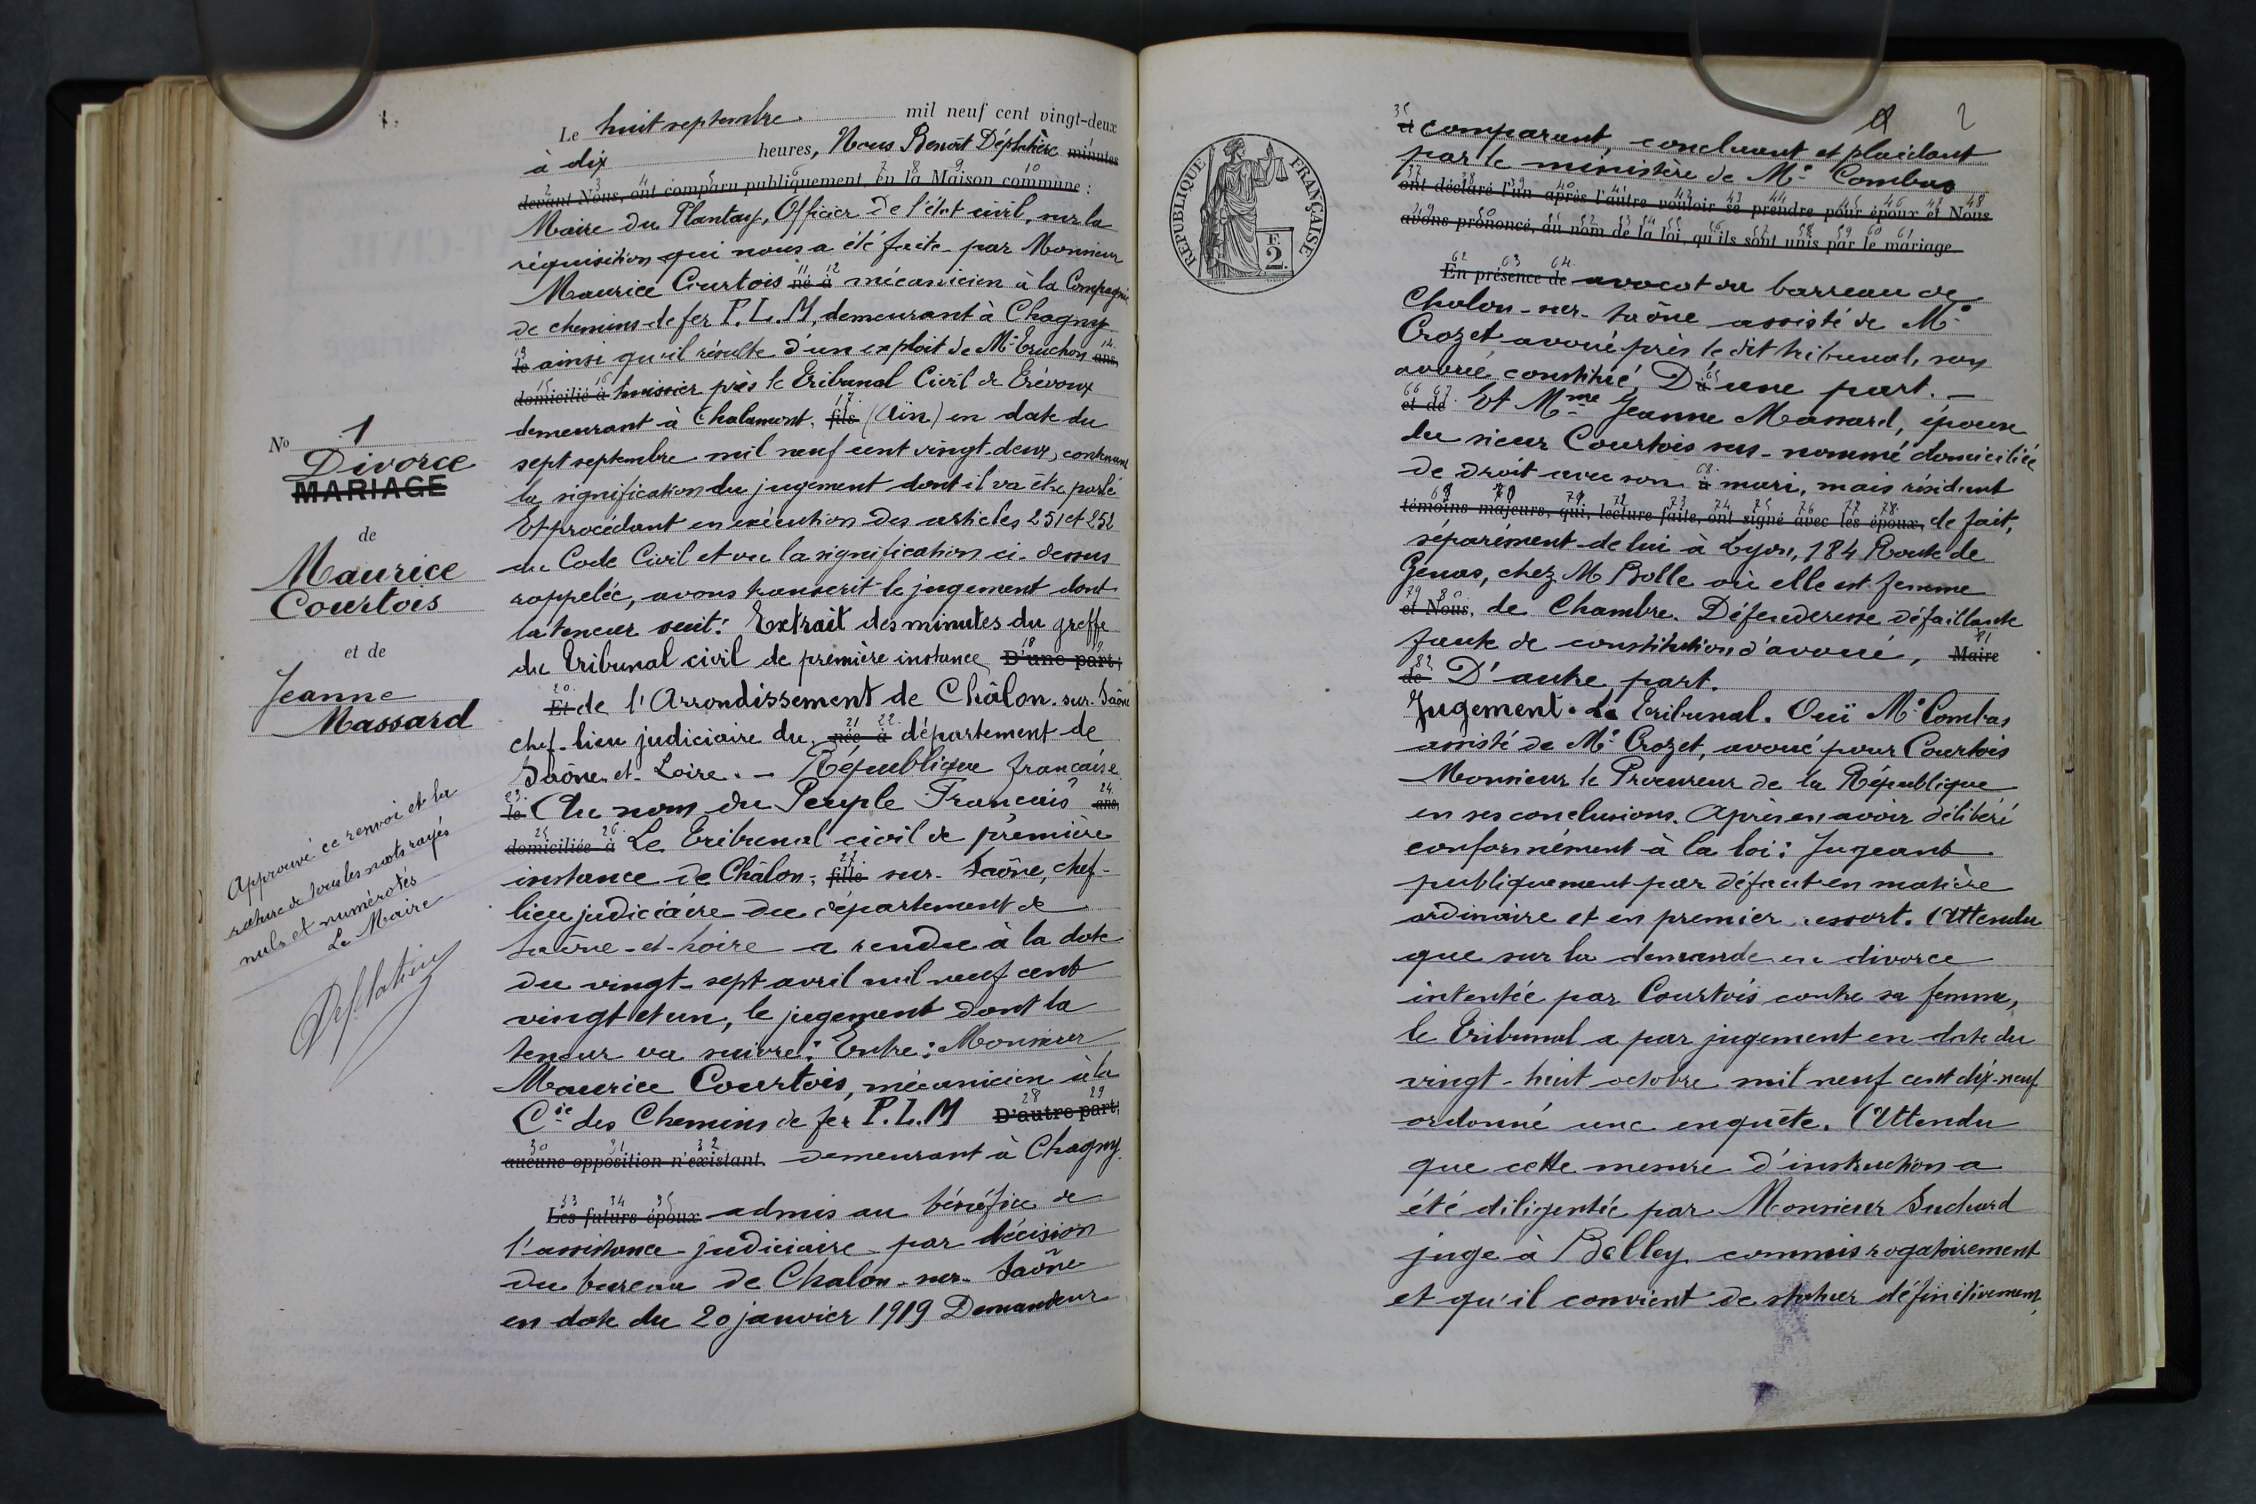 Le huit septembre mil neuf cent vingt-deux
à dix heures, Nous Benoît Déplatière minutes
devant Nous, ont comparu publiquement, en la Maison commune :
Maire du Plantay, Officier de l'état civil, sur la
réquisition qui nous a été faite par Monsieur
Maurice Courtois né à mécanicien à la Compagnie
de chemins de fer P.L.M, demeurant à Chagny
le ainsi qu'il résulte d'un exploit de Me Truchon ans,
domicilié à huissier près le Tribunal Civil de Trévoux
demeurant à Chalamont, fils (Ain) en date du
sept septembre mil neuf cent vingt-deux, contenant
la signification du jugement dont il va être parlé
Et procédant en exécution des articles 251 et 252
du Code Civil et vu la signification ci-dessus
rappelée, avons transcrit le jugement dont
la teneur suit : Extrait des minutes du greffe
du Tribunal civil de première instance D'une part ;
Et de l'Arrondissement de Châlon-sur-Saône
chef-lieu judiciaire du née à département de
Saône-et-Loire. – République française
le Au nom du Peuple Français ans,
domiciliée à Le Tribunal civil de première
instance de Châlon- fille sur-Saône, chef-
lieu judiciaire du département de
Saône-et-Loire a rendu à la date
du vingt-sept avril mil neuf cent
vingt et un, le jugement dont la
teneur va suivre : Entre : Monsieur
Maurice Courtois, mécanicien à la
Cie des Chemins de fer P.L.M D'autre part ;
aucune opposition n'existant. demeurant à Chagny.
Les futurs époux admis au bénéfice de
l'assistance judiciaire par décision
du bureau de Chalon-sur-Saône
en date du 20 janvier 1919 Demandeur
No 1
Divorce
MARIAGE
de
Maurice
Courtois
et de
Jeanne
Massard
Approuvé ce renvoi et la
rature de tous les mots rayés
nuls et numérotés
Le Maire
2
comparant, concluant et plaidant
par le ministère de Me Combas
ont déclaré l'un après l'autre vouloir se prendre pour époux et Nous
avons prononcé, au nom de la loi, qu'ils sont unis par le mariage.
En présence de avocat au barreau de
Chalon-sur-Saône assisté de Me
Crozet avoué près le dit tribunal, son
avoué constitué, D'une part. –
et de Et Mme Jeanne Massard, épouse
du sieur Courtois sus-nommé domiciliée
de droit avec son à mari, mais résidant
témoins majeurs, qui, lecture faite, ont signé avec les époux, de fait,
séparément de lui à Lyon, 184 Route de
Génas, chez M Bolle où elle est femme
et Nous, de Chambre. Défenderesse défaillante
faute de constitution d'avoué, Maire
de D'autre part.
Jugement. Le Tribunal. Ouï Me Combas
assisté de Me Crozet, avoué pour Courtois
Monsieur le Procureur de la République
en ses conclusions. Après en avoir délibéré
conformément à la loi : Jugeant
publiquement par défaut en matière
ordinaire et en premier ressort. Attendu
que sur la demande en divorce
intentée par Courtois contre sa femme,
le Tribunal a par jugement en date du
vingt-huit octobre mil neuf cent dix-neuf
ordonné une enquête. Attendu
que cette mesure d'instruction a
été diligentée par Monsieur Suchard
juge à Belley commis rogatoirement
et qu'il convient de statuer définitivement,
RÉPUBLIQUE FRANÇAISE
F.
2.